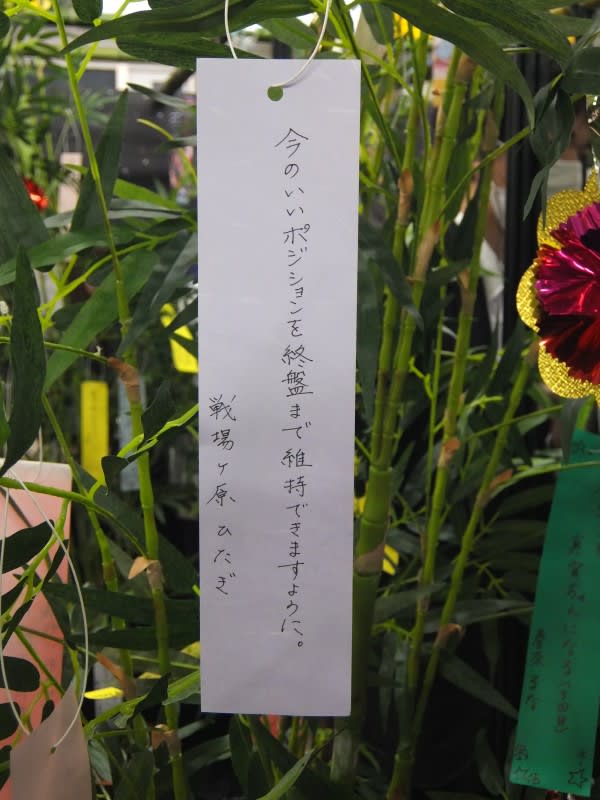 今のいいポジションを終盤まで維持できますように。
戦場ヶ原ひたぎ